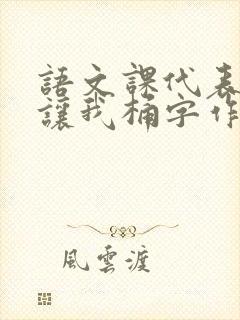 語文課代表
讓我桶字作
風雲渡